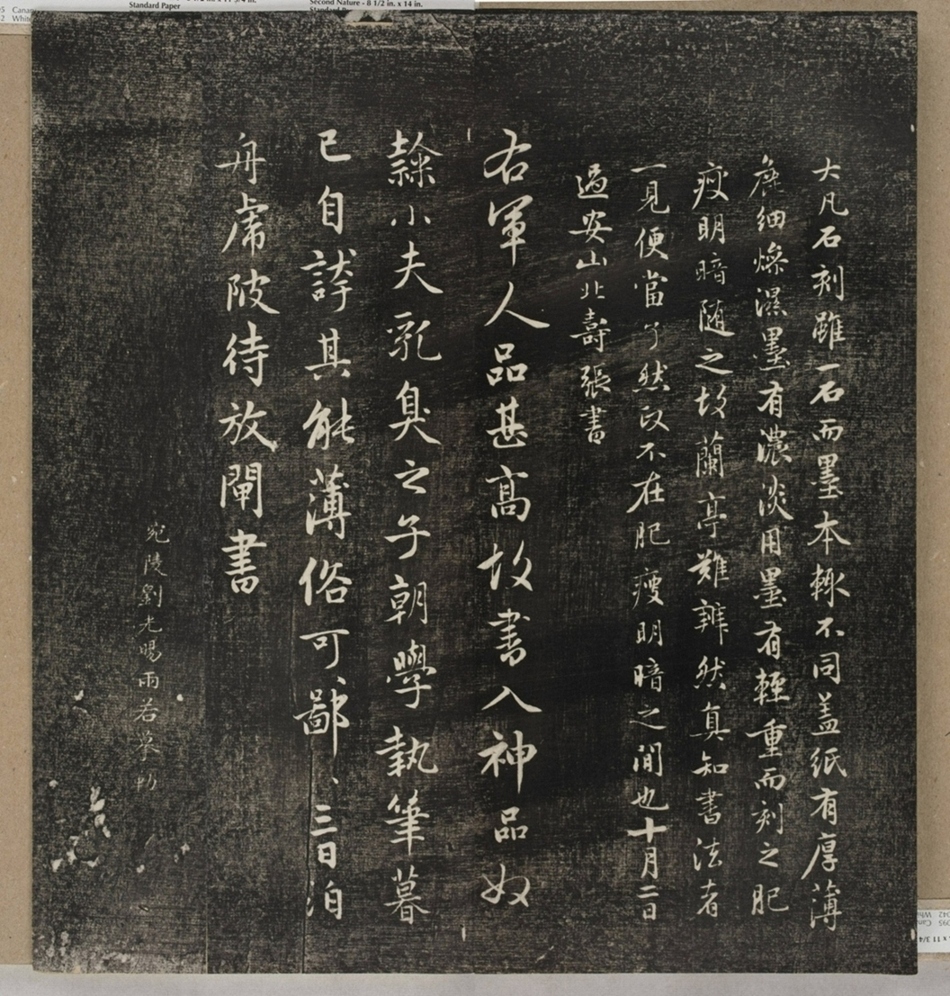 大凡石刻雖一石而墨本輒不同盖紙有厚薄
麁細燥濕墨有濃淡用墨有輕重而刻之肥
瘦明暗随之故蘭亭難辨然真知書法者
一見便當了然政不在肥瘦明暗之間也十月二日
過安山北壽張書
右軍人品甚高故書入神品奴
隸小夫乳臭之子朝學執筆暮
已自誇其能薄俗可鄙、三日泊
舟虎陂待放閘書
宛陵劉光暘雨若摹
Standard Paper
Second Nature - 8 1/2 in. x 14 in.